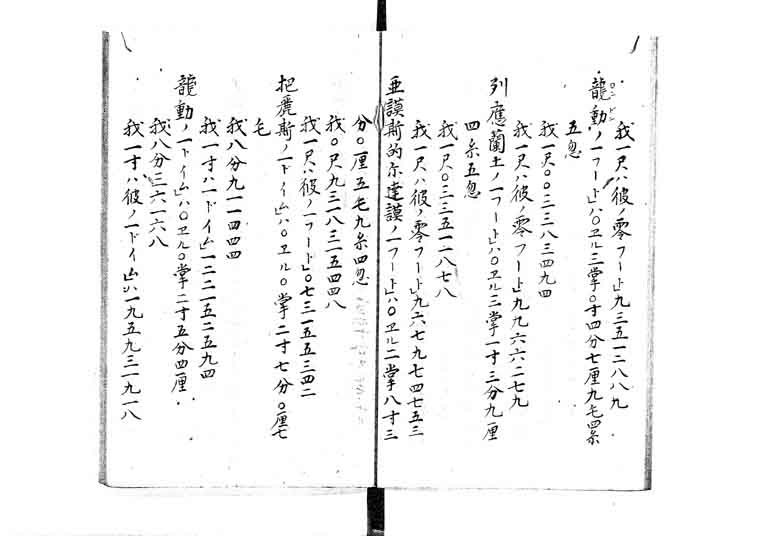 我一尺ハ彼ノ零フート九三五一二八八九
龍動ノ一フートハ〇ヱル三掌〇寸四分七厘九毛四糸
五忽
我一尺〇〇三三八三四九四
我一尺ハ彼ノ零フート九九六六二七九
列應蘭土ノ一フートハ〇ヱル三掌一寸三分九厘
四糸五忽
我一尺〇三三五一二八七八
我一尺ハ彼ノ零フート九六七九七四七五三
亜謨斯的尓達謨ノ一フートハ〇ヱル二掌八寸三
分〇厘五毛九糸四忽
我〇尺九三一八三一五四四八
我一尺ハ彼ノ一フート〇七三一五五三四二
把麑斯ノ一ドイムハ〇ヱル〇掌二寸七分〇厘七
毛
我八分九一一四四四
我一寸ハ一ドイム一二二一五二五九四
龍動ノ一ドイムハ〇ヱル〇掌二寸五分四厘
我八分三六一六八
我一寸ハ彼ノ一ドイムハ一九五九三一九一八